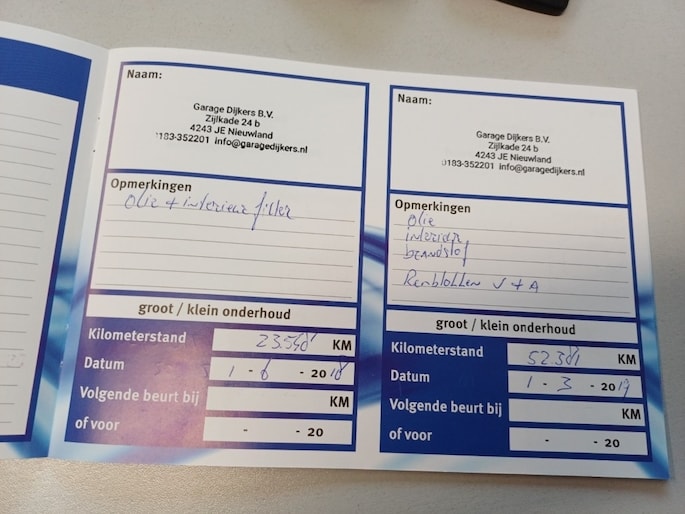 Naam:
Garage Dijkers B.V.
Zijlkade 24 b
4243 JE Nieuwland
0183-352201 info@garagedijkers.nl
Opmerkingen
olie + interieur filter
groot / klein onderhoud
Kilometerstand 23.548 KM
Datum 1 - 6 - 2018
Volgende beurt bij KM
of voor - - 20
Naam:
Garage Dijkers B.V.
Zijlkade 24 b
4243 JE Nieuwland
0183-352201 info@garagedijkers.nl
Opmerkingen
olie
interieur,
brandstof
Remblokken V + A
groot / klein onderhoud
Kilometerstand 52.381 KM
Datum 1 - 3 - 2019
Volgende beurt bij KM
of voor - - 20